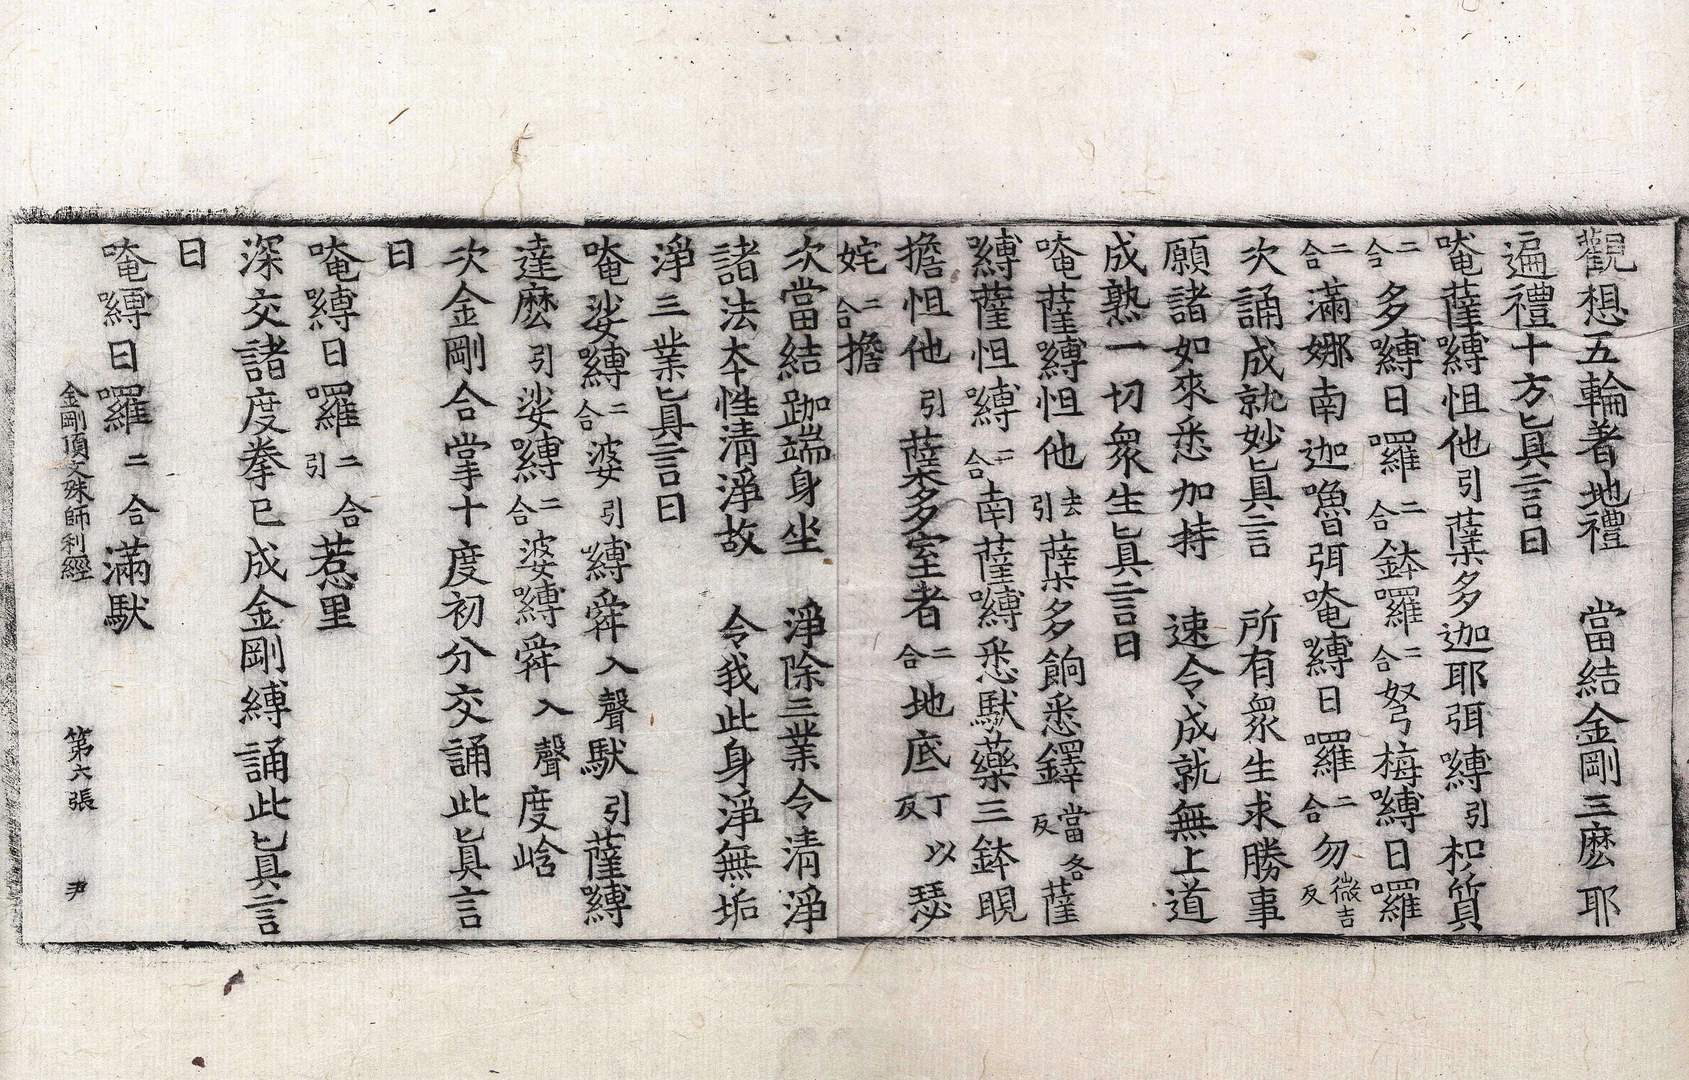 觀想五輪著地禮　當結金剛三麽耶
遍禮十方真言曰
唵薩嚩怛他引蘖多迦耶弭嚩引枳質
二合多嚩日囉二合鉢囉二合弩梅嚩日囉
二合滿娜南迦嚕弭唵嚩日囉二合勿微吉反
次誦成就妙真言　所有衆生求勝事
願諸如來悉加持　速令成就無上道
成熟一切衆生真言曰
唵薩嚩怛他去引蘖多餉悉鐸當各反薩
嚩薩怛嚩二合南薩嚩悉馱藥三鉢睍
擔怛他引蘖多室者二合地底丁以反瑟
姹二合擔
次當結跏端身坐　淨除三業令清淨
諸法本性清淨故　令我此身淨無垢
淨三業真言曰
唵娑嚩二合婆引嚩舜入聲馱引薩嚩
達麽引娑嚩二合婆嚩舜入聲度唅
次金剛合掌十度初分交誦此真言
曰
唵嚩日囉二合引惹里
深交諸度拳已成金剛縛誦此真言
曰
唵嚩日囉二合滿馱
金剛頂文殊師利經　第六張　尹